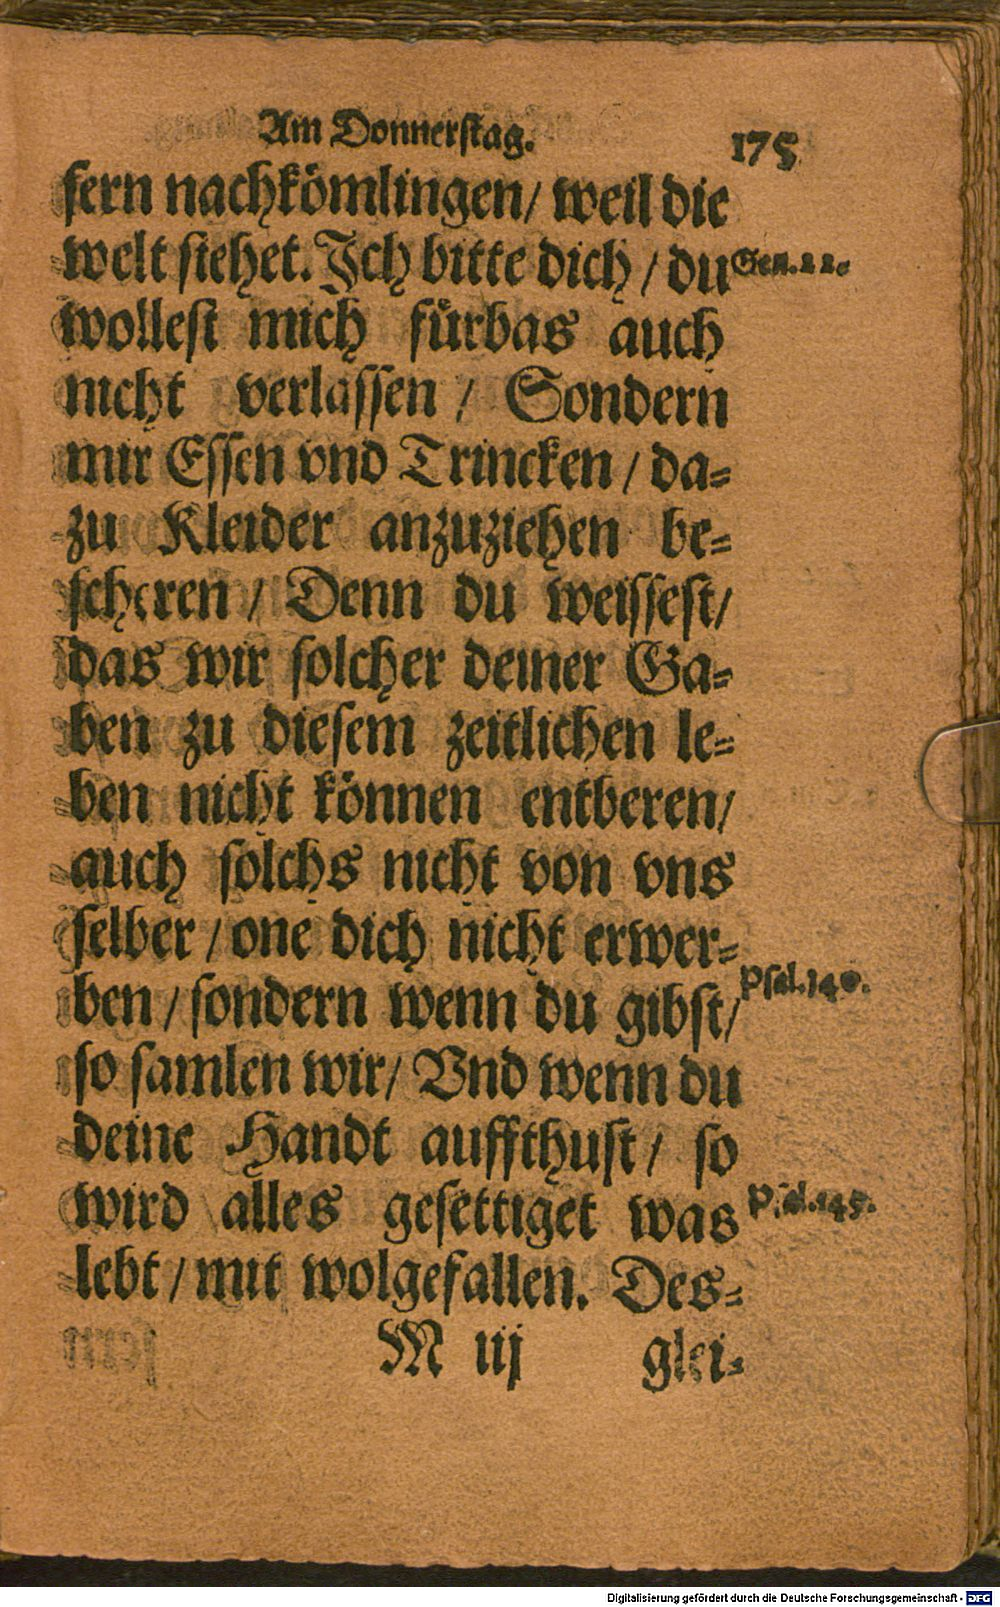 Am Donnerstag. 175
sern nachkömlingen/ weil die
welt stehet. Ich bitte dich/ du
wollest mich fürbas auch
nicht verlassen/ Sondern
mir Essen vnd Trincken/ da=
zu Kleider anzuziehen be=
scheren/ Denn du weissest/
das wir solcher deiner Ga=
ben zu diesem zeitlichen le=
ben nicht können entberen/
auch solchs nicht von vns
selber/ one dich nicht erwer=
ben/ sondern wenn du gibst/
so samlen wir/ Vnd wenn du
deine Handt auffthust/ so
wird alles gesettiget was
lebt/ mit wolgefallen. Des=
M iij glei=
Gen.
Psal.
Psal.145.
Digitalisierung gefördert durch die Deutsche Forschungsgemeinschaft - DFG